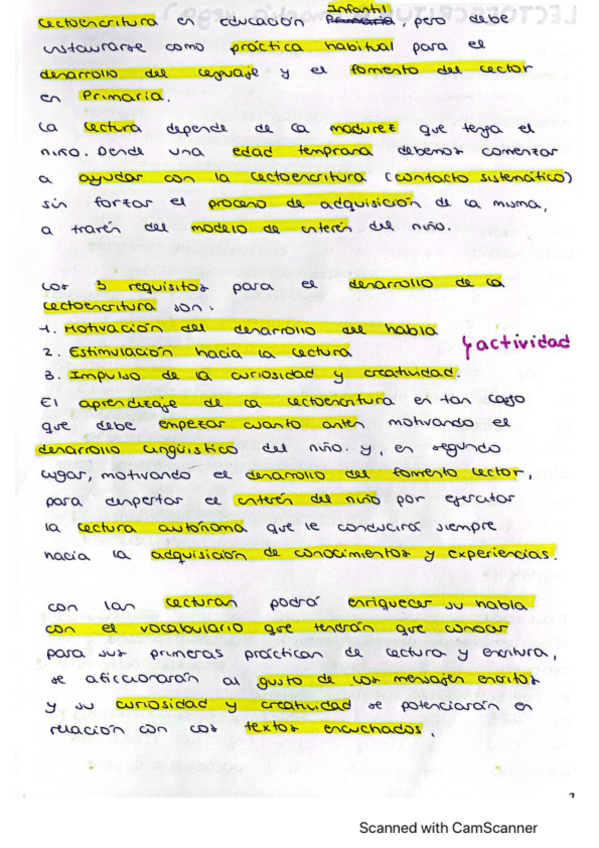 Infantil
lectoescritura en educación Primaria, pero debe
instaurarse como práctica habitual para el
desarrollo del lenguaje y el fomento del lector
en Primaria.
La lectura depende de la madurez que tenga el
niño. Desde una edad temprana debemos comenzar
a ayudar con la lectoescritura (contacto sistemático)
sin forzar el proceso de adquisición de la misma,
a través del modelo de interés del niño.
Los 3 requisitos para el desarrollo de la
lectoescritura son:
1. Motivación del desarrollo del habla
2. Estimulación hacia la lectura
actividad
3. Impulso de la curiosidad y creatividad.
El aprendizaje de la lectoescritura es tan largo
que debe empezar cuanto antes motivando el
desarrollo lingüístico del niño. y, en segundo
lugar, motivando el desarrollo del fomento lector,
para despertar el interés del niño por ejercitar
la lectura autónoma que le conducirá siempre
hacia la adquisición de conocimientos y experiencias.
Con las lecturas podrá enriquecer su habla
con el vocabulario que tendrán que conocer
para sus primeras prácticas de lectura y escritura,
se aficcionarán al gusto de los mensajes escritos
y su curiosidad y creatividad se potenciarán en
relación con los textos escuchados.
Scanned with CamScanner